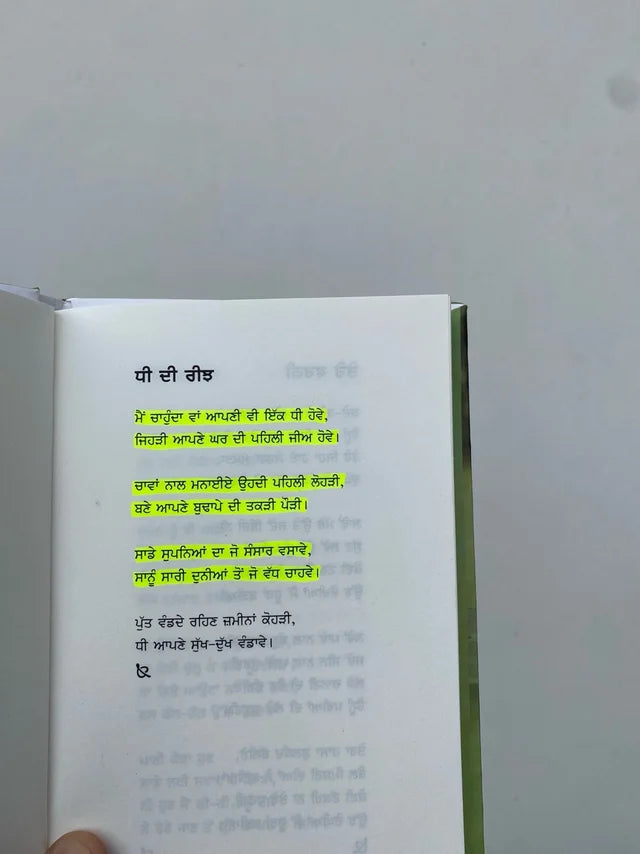 ਧੀ ਦੀ ਰੀਝ
ਮੈਂ ਚਾਹੁੰਦਾ ਵਾਂ ਆਪਣੀ ਵੀ ਇੱਕ ਧੀ ਹੋਵੇ,
ਜਿਹੜੀ ਆਪਣੇ ਘਰ ਦੀ ਪਹਿਲੀ ਜੀਅ ਹੋਵੇ।
ਚਾਵਾਂ ਨਾਲ ਮਨਾਈਏ ਉਹਦੀ ਪਹਿਲੀ ਲੋਹੜੀ,
ਬਣੇ ਆਪਣੇ ਬੁਢਾਪੇ ਦੀ ਤਕੜੀ ਪੌੜੀ।
ਸਾਡੇ ਸੁਪਨਿਆਂ ਦਾ ਜੋ ਸੰਸਾਰ ਵਸਾਵੇ,
ਸਾਨੂੰ ਸਾਰੀ ਦੁਨੀਆਂ ਤੋਂ ਜੋ ਵੱਧ ਚਾਹਵੇ।
ਪੁੱਤ ਵੰਡਦੇ ਰਹਿਣ ਜ਼ਮੀਨਾਂ ਕੋਹੜੀ,
ਧੀ ਆਪਣੇ ਸੁੱਖ-ਦੁੱਖ ਵੰਡਾਵੇ।